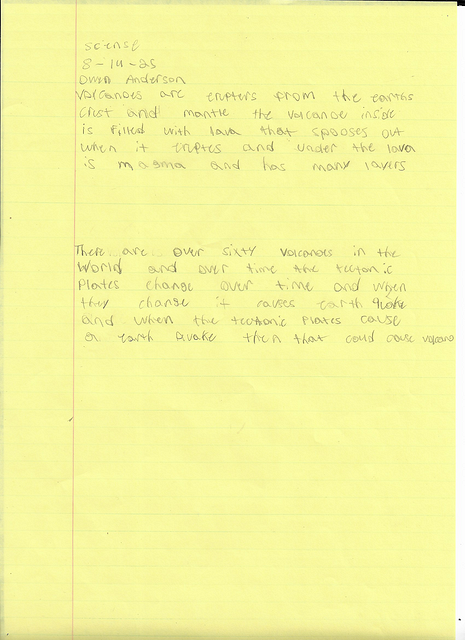 sciense
8-14-25
Owen Anderson
volcanoes are erupters from the earths
crust and mantle the volcanoe inside
is filled with lava that spooses out
when it eruptes and under the lava
is magma and has many layers
There are over sixty volcanoes in the
World and over time the tectonic
Plates change over time and when
they change it causes earth quake
and when the tectronic Plates cause
a earth Quake then that could cause volcano